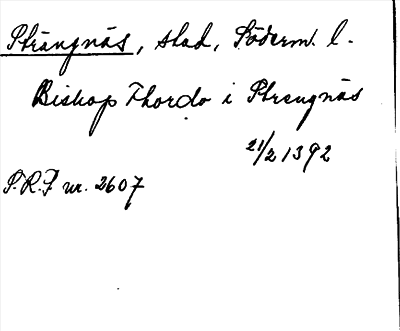 Strängnäs, stad, Söderm. l.
Biskop Thordo i Strengnäs
21/2 1392
S.R.F nr. 2607